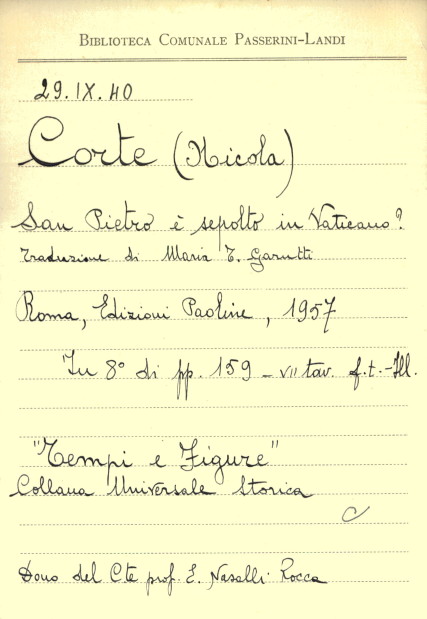 BIBLIOTECA COMUNALE PASSERINI-LANDI
29.IX.40
Corte (Nicola)
San Pietro è sepolto in Vaticano?
Traduzione di Maria T. Garutti
Roma, Edizioni Paoline, 1957
In 8° di pp. 159 - VII tav. f.t.-Ill.
"Tempi e Figure"
Collana Universale Storica
C
Dono del Cte prof. E. Nasalli Rocca